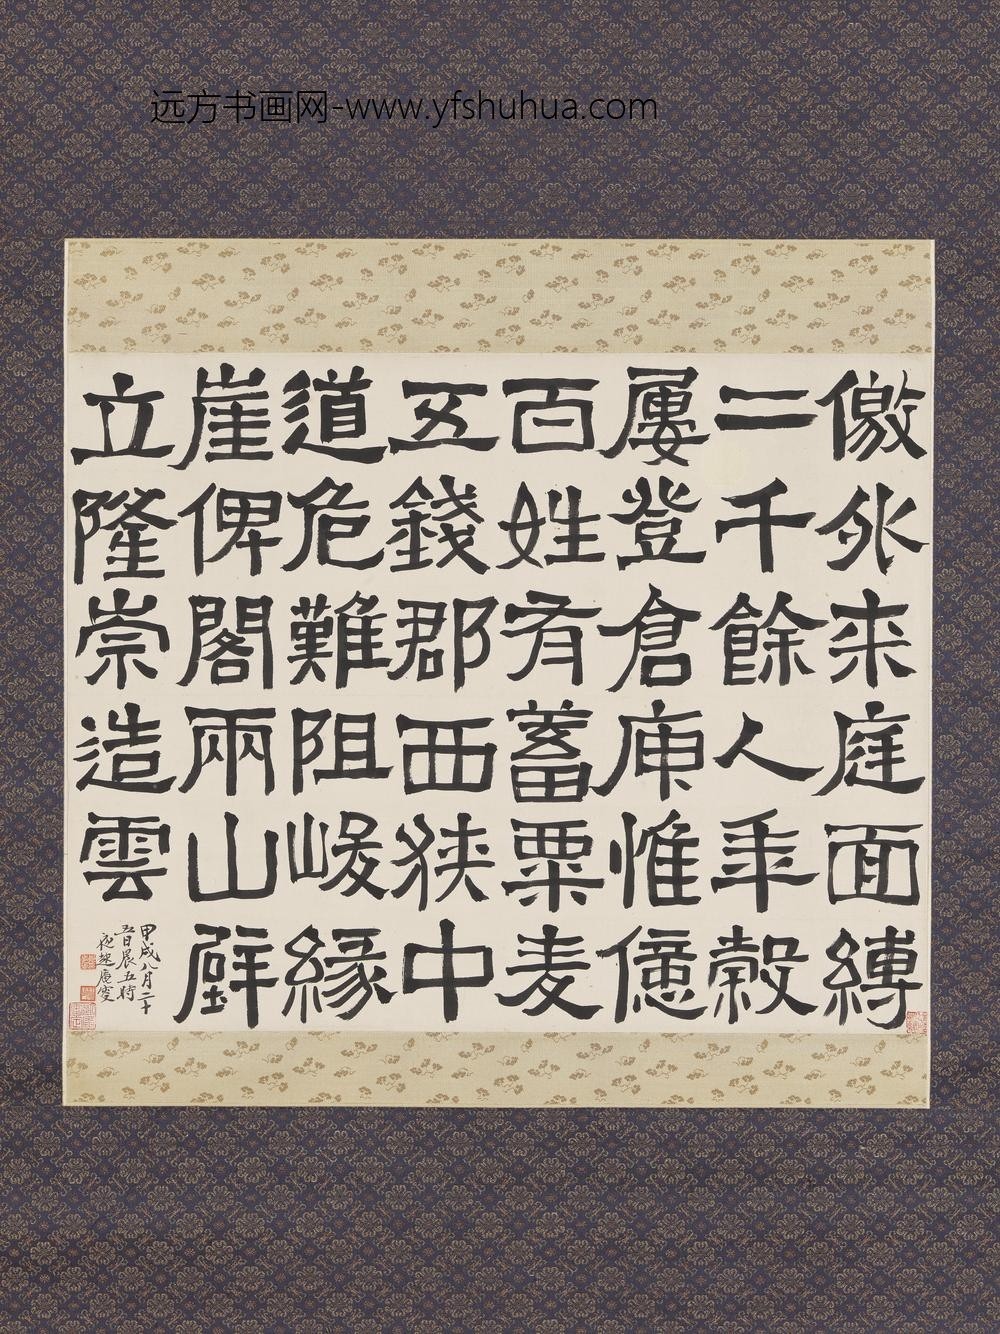 远方书画网-www.yfshuhua.com
儌外来庭面縛
二千餘人年穀
屢登倉庾惟億
百姓有蓄粟麦
五錢郡西狭中
道危難阻峻緣
崖俾閣兩山壁
立隆崇造雲
甲戌八月二十
五日晨五时